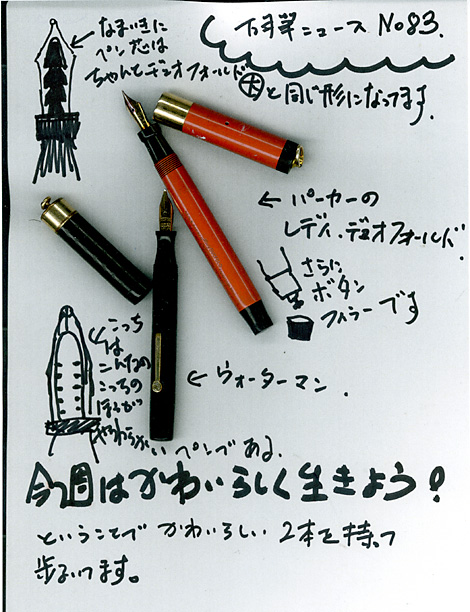 万年筆ニュース No83.
なまいきに
ペン芯は
ちゃんとデュオフォールド
大と同じ形になってます.
← パーカーの
レディ.デュオフォールド.
さらに
ボタン
フィラーです
← こっち
は
こんなの
こっちの
ほうが
やわらかい ペンである.
← ウォーターマン.
今週はかわいらしく生きよう!
ということで かわいらしい 2本を持って
歩いてます。